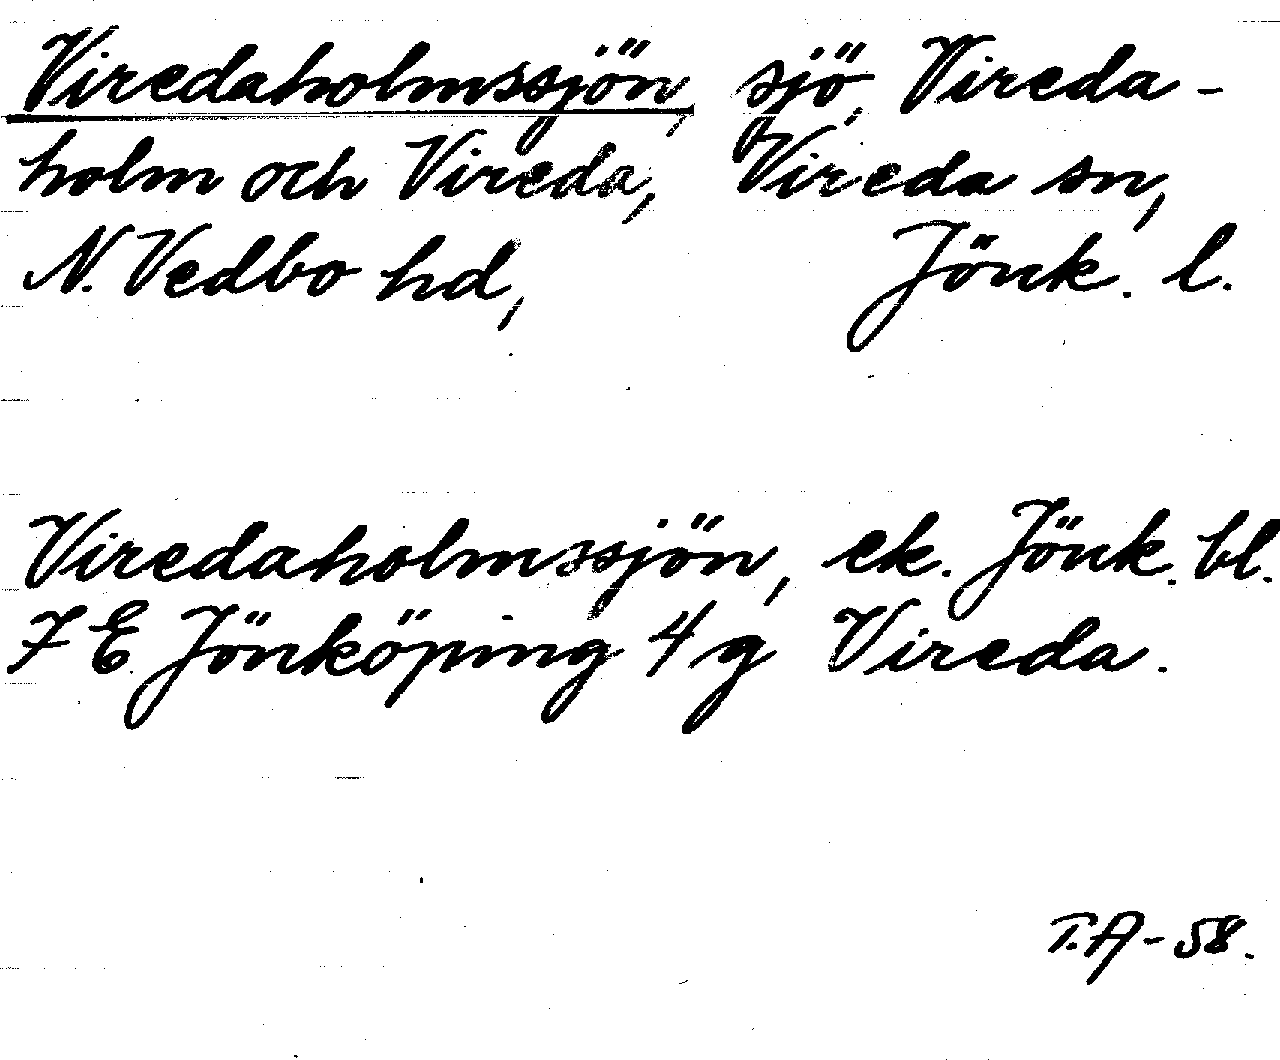 Viredaholmssjön, sjö, Vireda-
holm och Vireda, Vireda sn,
N. Vedbo hd, Jönk. l.
Viredaholmssjön, ek. Jönk. bl.
7 E Jönköping 4 g Vireda.
T.A-58.